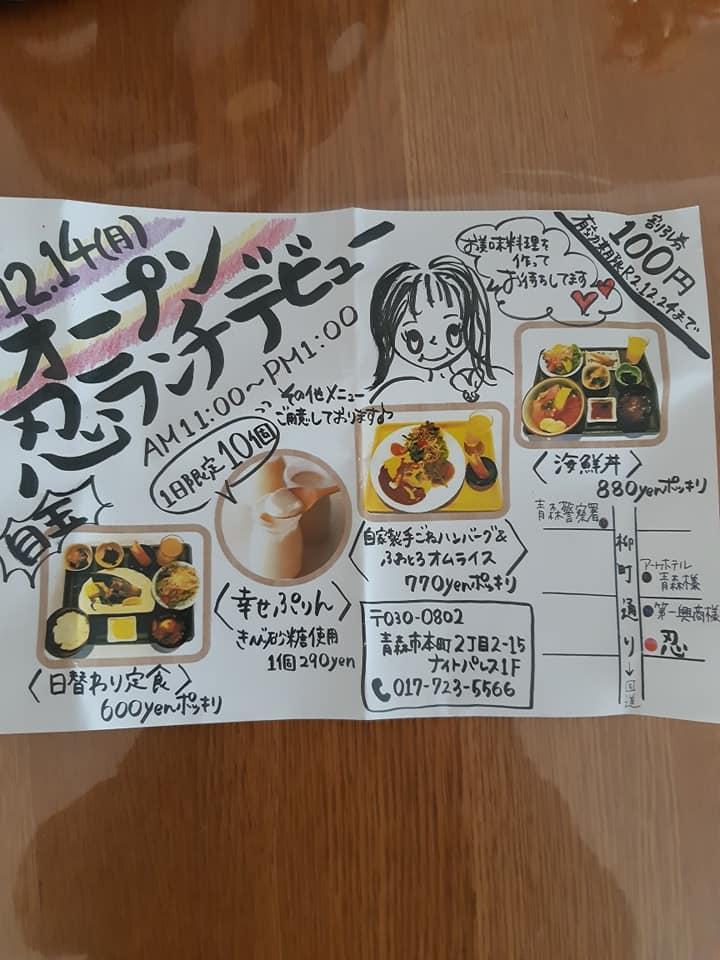 12.14(月)
オープン
忍ランチデビュー
AM11:00~PM1:00
お美味料理を
作って
お待ちしてます
割引券
100円
有効期限R2.12.24まで
その他メニュー
ご用意しております
1日限定10個
〈海鮮丼〉
880yenポッキリ
〈自家製手ごねハンバーグ&
ふわとろオムライス〉
770yenポッキリ
〈幸せぷりん〉
きび砂糖使用
1個290yen
〈日替わり定食〉
600yenポッキリ
〒030-0802
青森市本町2丁目2-15
ナイトパレス1F
017-723-5566
青森警察署
柳町通り
→国道
アートホテル
青森様
第一興商様
忍